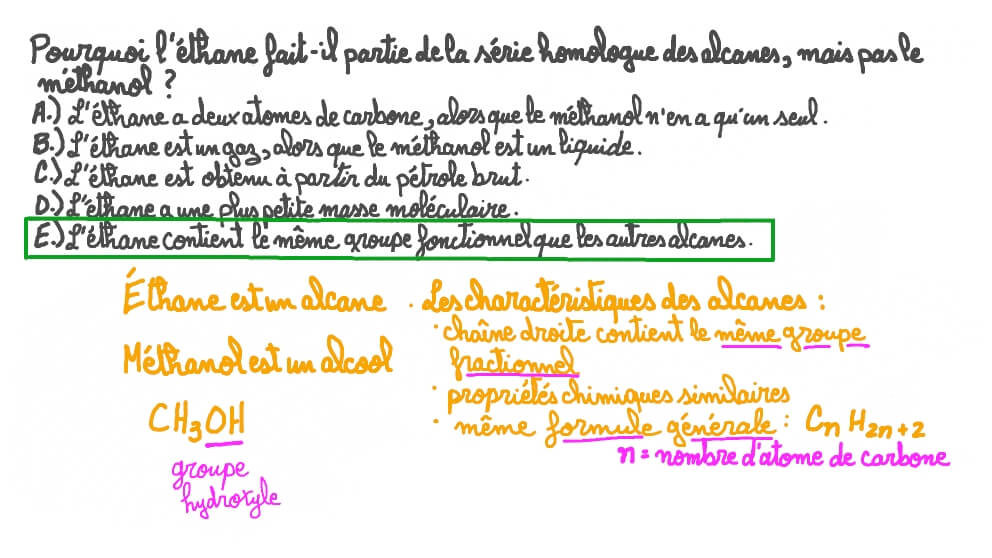 Pourquoi l'éthane fait-il partie de la série homologue des alcanes, mais pas le
méthanol ?
A.) L'éthane a deux atomes de carbone, alors que le méthanol n'en a qu'un seul.
B.) L'éthane est un gaz, alors que le méthanol est un liquide.
C.) L'éthane est obtenu à partir du pétrole brut.
D.) L'éthane a une plus petite masse moléculaire.
E.) L'éthane contient le même groupe fonctionnel que les autres alcanes.
Éthane est un alcane
Méthanol est un alcool
CH3OH
groupe
hydrotyle
· Les charactéristiques des alcanes :
· chaîne droite contient le même groupe
fractionnel
· propriétés chimiques similaires
· même formule générale : CnH2n+2
n = nombre d'atome de carbone